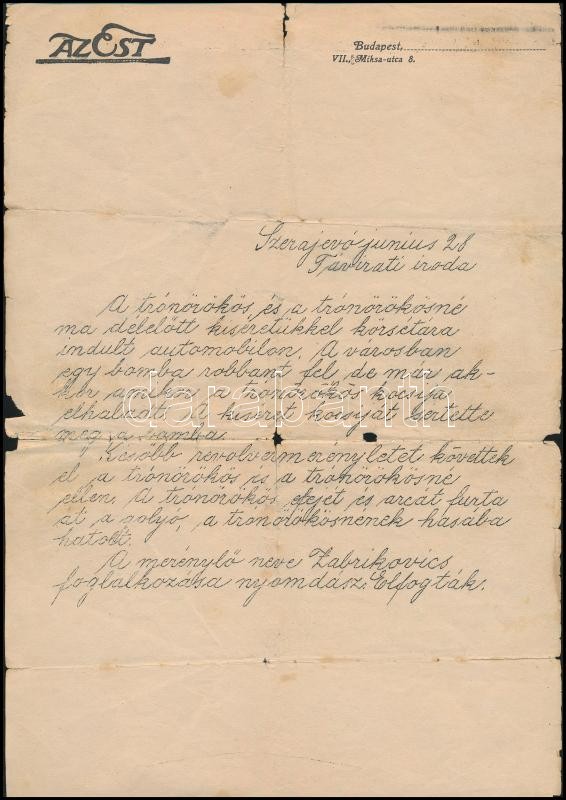 AZ EST
Budapest,
VII., Miksa-utca 8.
Szerajevó junius 28
Távirati iroda
A trónörökös és a trónörökösné
ma délelőtt kiséretükkel körsétára
indult automobilon. A városban
egy bomba robbant fel de már ak-
kor amikor a trónörökös kocsija
elhaladt. A kiséret kocsiját sértette
meg a bomba.
Később revolvermerényletet követtek
el a trónörökös és a trónörökösné
ellen. A trónörökös fejét és arcát furta
át a golyó, a trónörökösnének hasába
hatolt.
A merénylő neve Zabrikovics
foglalkozása nyomdász. Elfogták.
darabanth